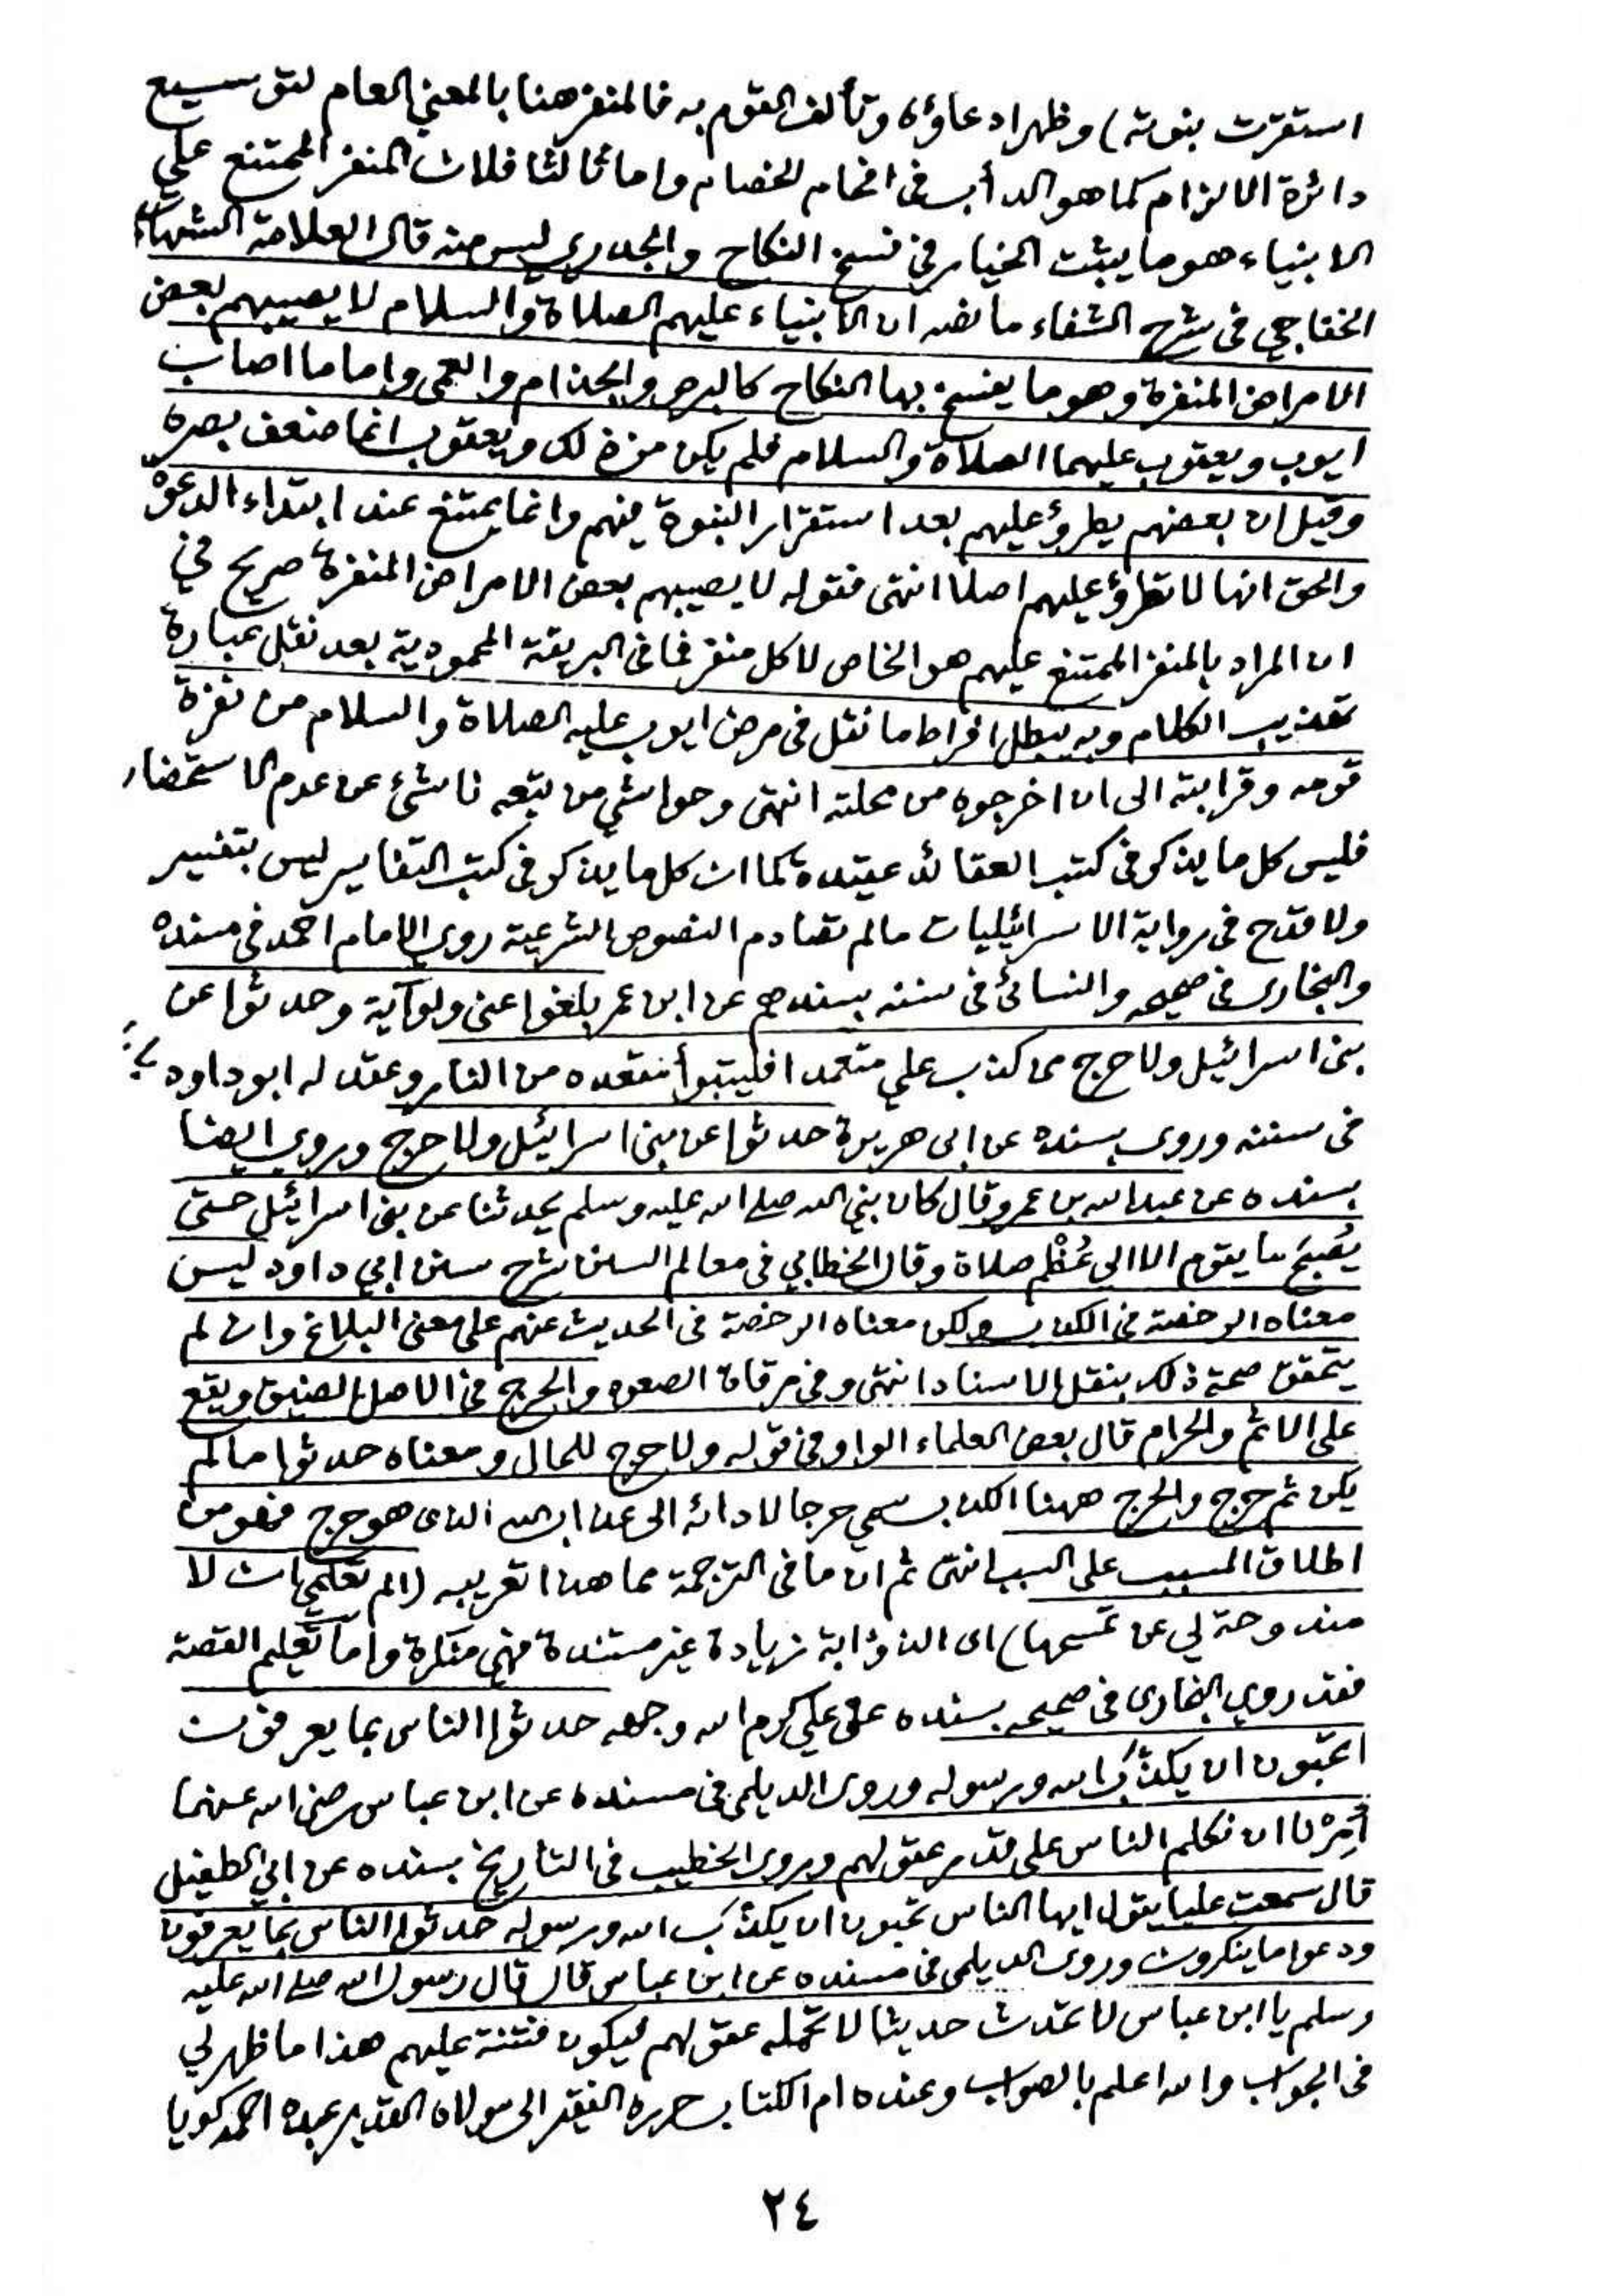 استقرت بنوته) وظهر ادعاؤه وتألف القوم به فالمنفر هنا بالمعنى العام لتوسيع
دائرة الالزام كما هو الدأب فى افحام الخصام واما ثالثا فلان المنفر الممتنع على
الانبياء هو ما يثبت الخيار في فسخ النكاح والجدري ليس منه قال العلامة الشهاب
الخفاجي فى شرح الشفاء ما نصه ان الانبياء عليهم الصلاة والسلام لا يصيبهم بعض
الامراض المنفرة وهو ما يفسخ بها النكاح كالبرص والجذام والعمى واما ما اصاب
ايوب ويعقوب عليهما الصلاة والسلام فلم يكن من ذلك ويعقوب انما ضعف بصره
وقيل ان بعضهم يطرؤ عليهم بعد استقرار النبوة فيهم وانما يمتنع عند ابتداء الدعوة
والحق انها لا تطرؤ عليهم اصلا انتهى فقوله لا يصيبهم بعض الامراض المنفرة صريح في
ان المراد بالمنفر الممتنع عليهم هو الخاص لا كل منفر فما فى البريقة المحمودية بعد نقل عبارة
تهذيب الكلام وبه يبطل افراط ما نقل فى مرض ايوب عليه الصلاة والسلام من نفرة
قومه وقرابته الى ان اخرجوه من محلته انتهى وحواشي من تبعه ناشئ عن عدم الاستحضار
فليس كل ما يذكر فى كتب العقائد عقيدة كما ان كل ما يذكر فى كتب التفاسير ليس بتفسير
ولا قدح فى رواية الاسرائيليات مالم تصادم النصوص الشرعية روى الامام احمد فى مسنده
والبخارى فى صحيحه والنسائى فى سننه بسندهم عن ابن عمر بلغوا عنى ولو آية وحدثوا عن
بنى اسرائيل ولا حرج من كذب علي متعمدا فليتبوأ مقعده من النار وعقد له ابو داود
فى سننه وروى بسنده عن ابى هريرة حدثوا عن بنى اسرائيل ولا حرج وروى ايضا
بسنده عن عبد الله بن عمرو قال كان نبي الله صلى الله عليه وسلم يحدثنا عن بنى اسرائيل حتى
يُصْبِحَ ما يقوم الا الى عُظْم صلاة وقال الخطابي فى معالم السنن شرح سنن ابي داود ليس
معناه الرخصة فى الكذب ولكن معناه الرخصة فى الحديث عنهم على معنى البلاغ وان لم
يتحقق صحة ذلك بنقل الاسناد انتهى وفى مرقاة الصعود والحرج فى الاصل الضيق ويقع
على الاثم والحرام قال بعض العلماء الواو فى قوله ولا حرج للحال ومعناه حدثوا مالم
يكن ثم حرج والحرج ههنا الكذب سمي حرجا لادائه الى عذاب الله الذى هو حرج فهو من
اطلاق المسبب على السبب انتهى ثم ان ما فى الترجمة مما هذا تعريبه (الم تعلمي ان لا
مندوحة لي عن تمسحها) اى الذؤابة زيادة غير مستندة فهي منكرة واما تعليم القصة
فقد روى البخارى فى صحيحه بسنده عن علي كرم الله وجهه حدثوا الناس بما يعرفون
اتحبّون ان يكذّب الله ورسوله وروى الديلمى فى مسنده عن ابن عباس رضى الله عنهما
أُمِرْنا ان نكلم الناس على قدر عقولهم وروى الخطيب فى التاريخ بسنده عن ابي الطفيل
قال سمعت عليا يقول ايها الناس تحبون ان يكذّب الله ورسوله حدثوا الناس بما يعرفون
ودعوا ما ينكرون وروى الديلمى فى مسنده عن ابن عباس قال قال رسول الله صلى الله عليه
وسلم يا ابن عباس لا تحدث حديثا لا تحمله عقولهم فيكون فتنة عليهم هذا ما ظهر لي
فى الجواب والله اعلم بالصواب وعنده ام الكتاب حرره الفقير الى مولاه القدير عبده احمد كويا
٢٤